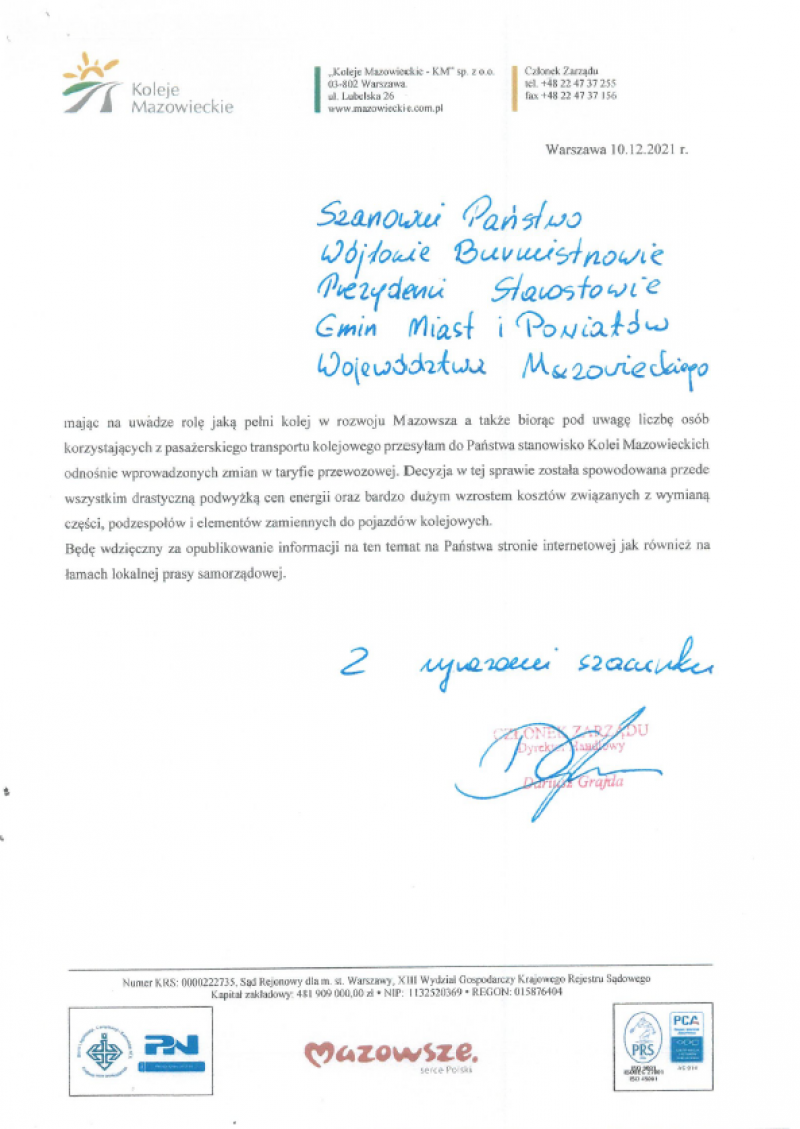 Koleje
Mazowieckie
„Koleje Mazowieckie - KM" sp. z o.o.
03-802 Warszawa
ul. Lubelska 26
www.mazowieckie.com.pl
Członek Zarządu
tel. +48 22 47 37 255
fax +48 22 47 37 156
Warszawa 10.12.2021 r.
Szanowni Państwo
Wójtowie Burmistrzowie
Prezydenci Starostowie
Gmin Miast i Powiatów
Województwa Mazowieckiego
mając na uwadze rolę jaką pełni kolej w rozwoju Mazowsza a także biorąc pod uwagę liczbę osób
korzystających z pasażerskiego transportu kolejowego przesyłam do Państwa stanowisko Kolei Mazowieckich
odnośnie wprowadzonych zmian w taryfie przewozowej. Decyzja w tej sprawie została spowodowana przede
wszystkim drastyczną podwyżką cen energii oraz bardzo dużym wzrostem kosztów związanych z wymianą
części, podzespołów i elementów zamiennych do pojazdów kolejowych.
Będę wdzięczny za opublikowanie informacji na ten temat na Państwa stronie internetowej jak również na
łamach lokalnej prasy samorządowej.
Z wyrazami szacunku
CZŁONEK ZARZĄDU
Dyrektor Handlowy
Dariusz Grajda
Numer KRS: 0000222735, Sąd Rejonowy dla m. st. Warszawy, XIII Wydział Gospodarczy Krajowego Rejestru Sądowego
Kapitał zakładowy: 481 909 000,00 zł • NIP: 1132520369 • REGON: 015876404
PN
Mazowsze.
serce Polski
PRS
ISO 9001
ISO 45001
PCA